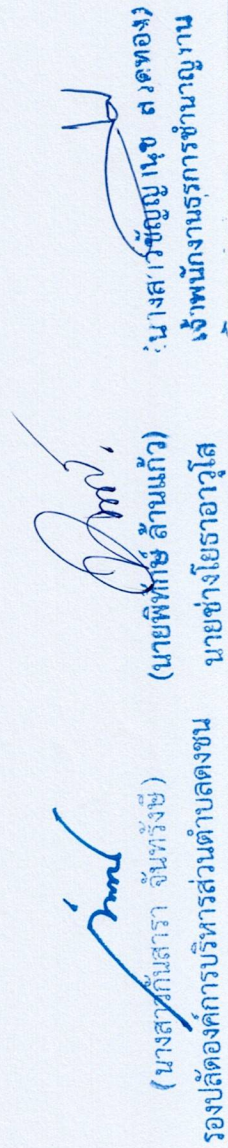 (นางสาวกันสารา จันทรังษี)
รองปลัดองค์การบริหารส่วนตำบลดงชน
(นายพิทักษ์ ล้านแก้ว)
นายช่างโยธาอาวุโส
(นางสาวชัญญานุช
เจ้าพนักงานธุรการชำนาญงาน